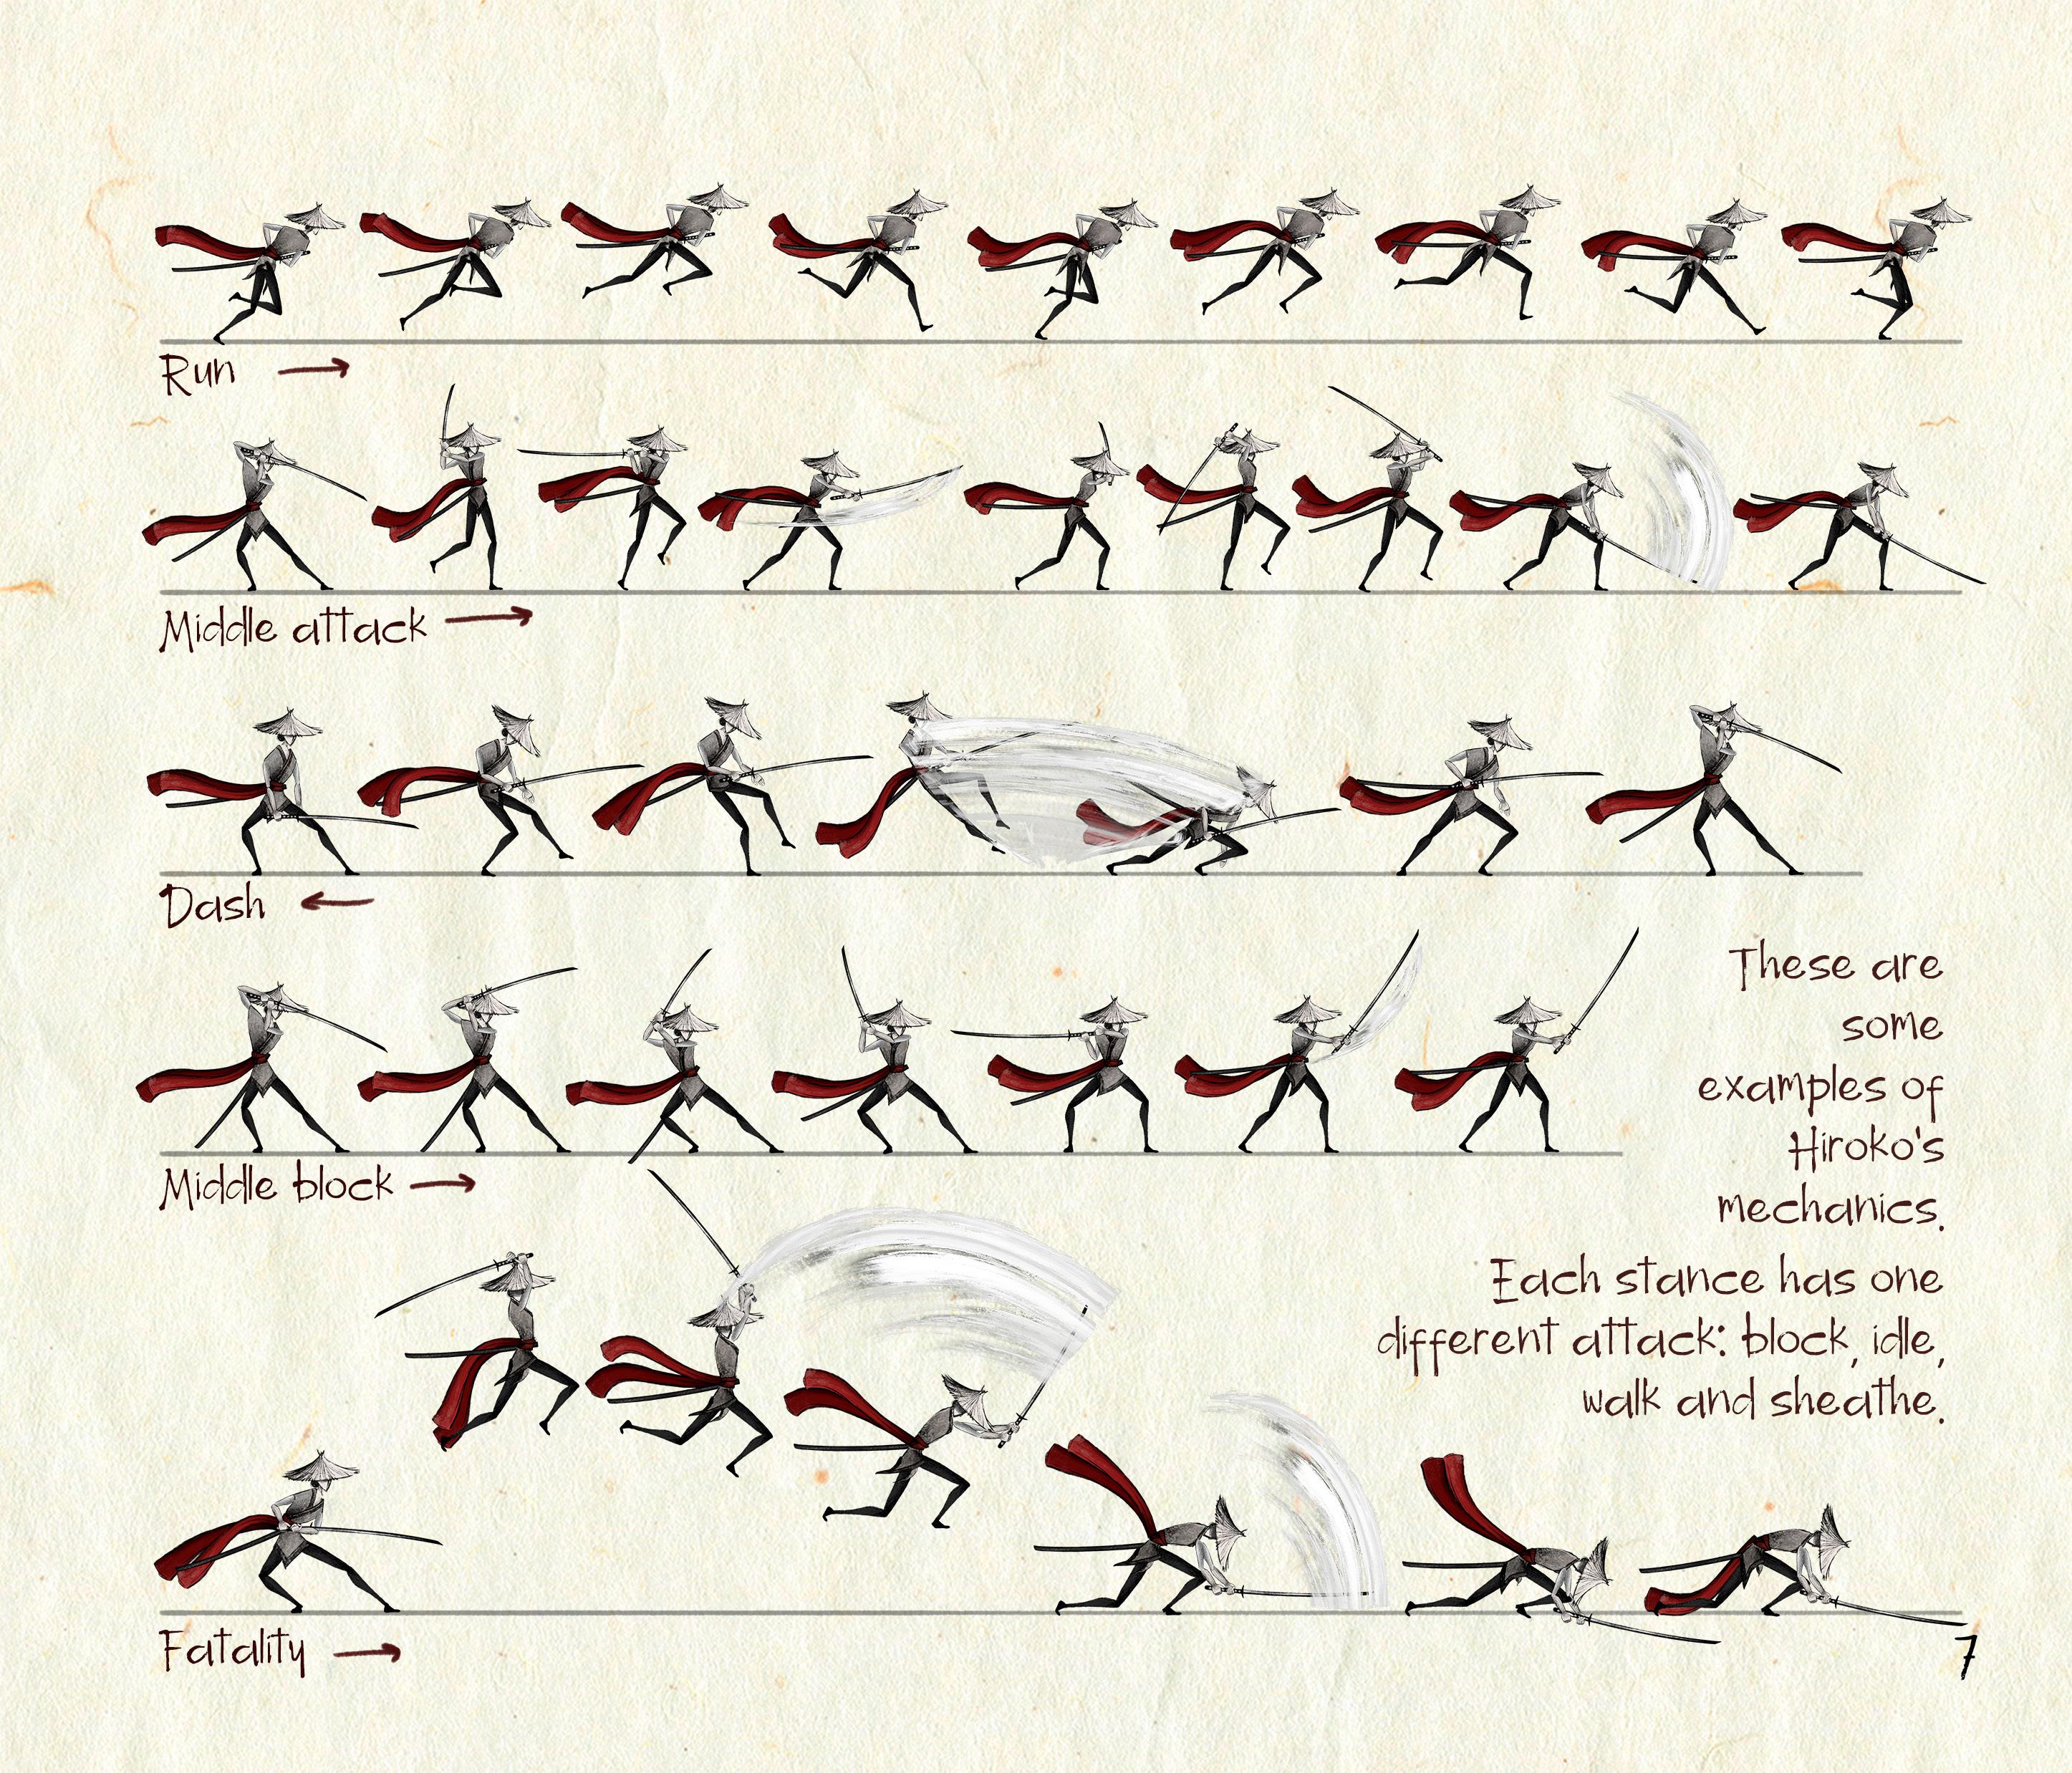 Run
Middle attack
Dash
These are
some
examples of
Hiroko's
mechanics.
Middle block
Each stance has one
different attack: block, idle,
walk and sheathe.
Fatality
7